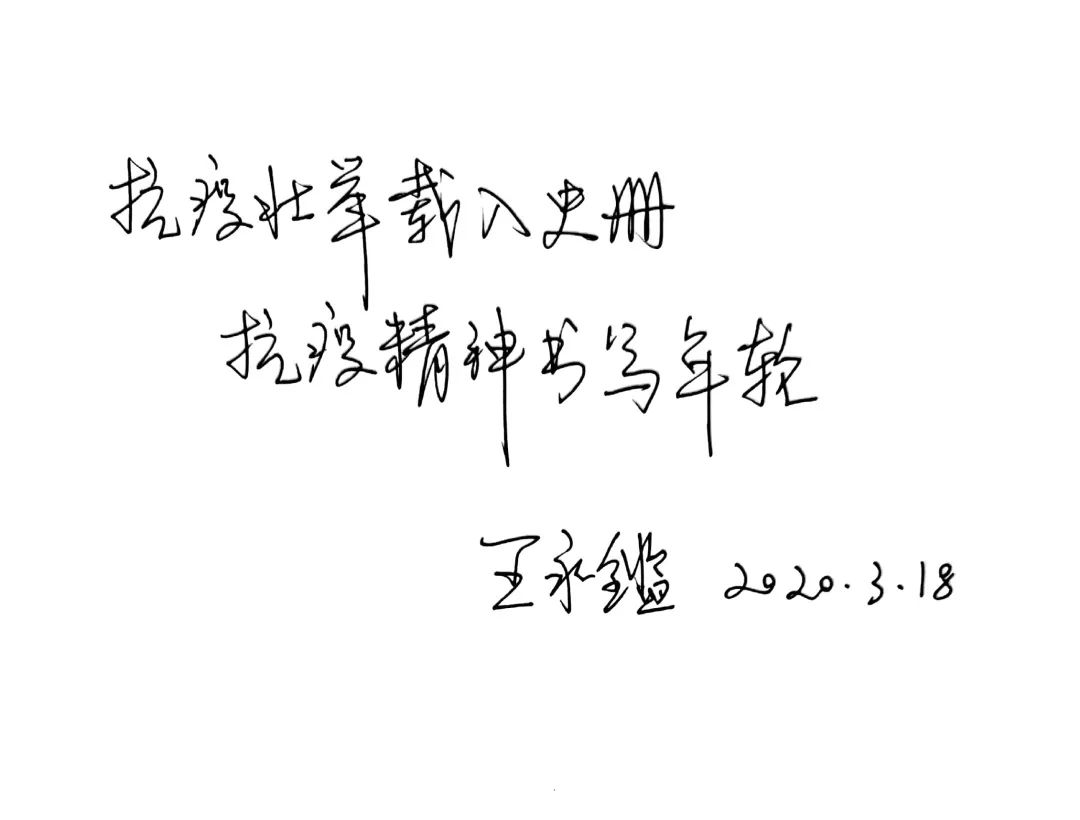 抗疫壮举载入史册
抗疫精神书写年轮
王永鑑 2020.3.18